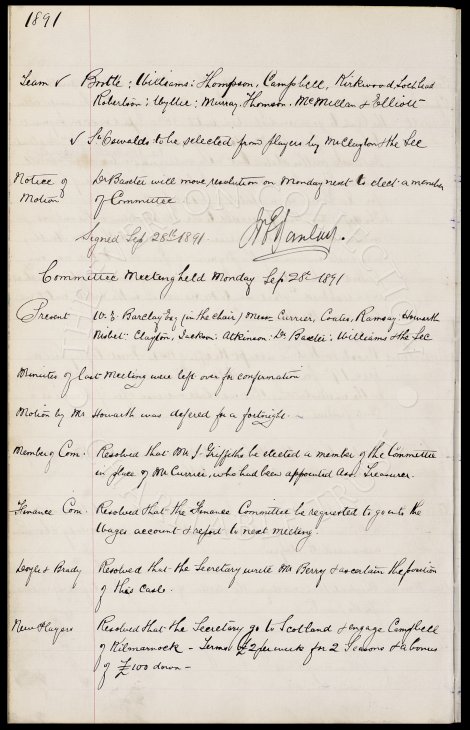 1891
Team v Bootle; Williams: Thompson, Campbell, Kirkwood, Lochhead
Robertson; Wyllie; Murray, Thomson, McMillan & Elliott
v St Oswalds to be selected from players by Mr Clayton & the Sec
Notice of Dr Baxter will move resolution on Monday next to elect a member
Motion of Committee
Signed Sep 28th 1891
Committee Meeting held Monday Sep 28th 1891
Present W. E. Barclay Esq (in the chair) Messrs Currier, Coates, Ramsay Howarth
Nisbet: Clayton, Jackson: Atkinson: Dr Baxter: Williams & the Sec
Minutes of last Meeting were left over for confirmation
Motion by Mr Howarth was defered for a fortnight.
Member of Com. Resolved that Mr J. Griffiths be elected a member of the Committee
in place of Mr Currier, who had been appointed Ass. Treasurer.
Finance Com. Resolved that the Finance Committee be requested to go into the
Wages account & report to next meeting.
Doyle & Brady Resolved that the Secretary write Mr Berry & ascertain the position
of this case.
New Players Resolved that the Secretary go to Scotland & engage Campbell
of Kilmarnock - Terms £2 per week for 2 Seasons & a bonus
of £100 down -